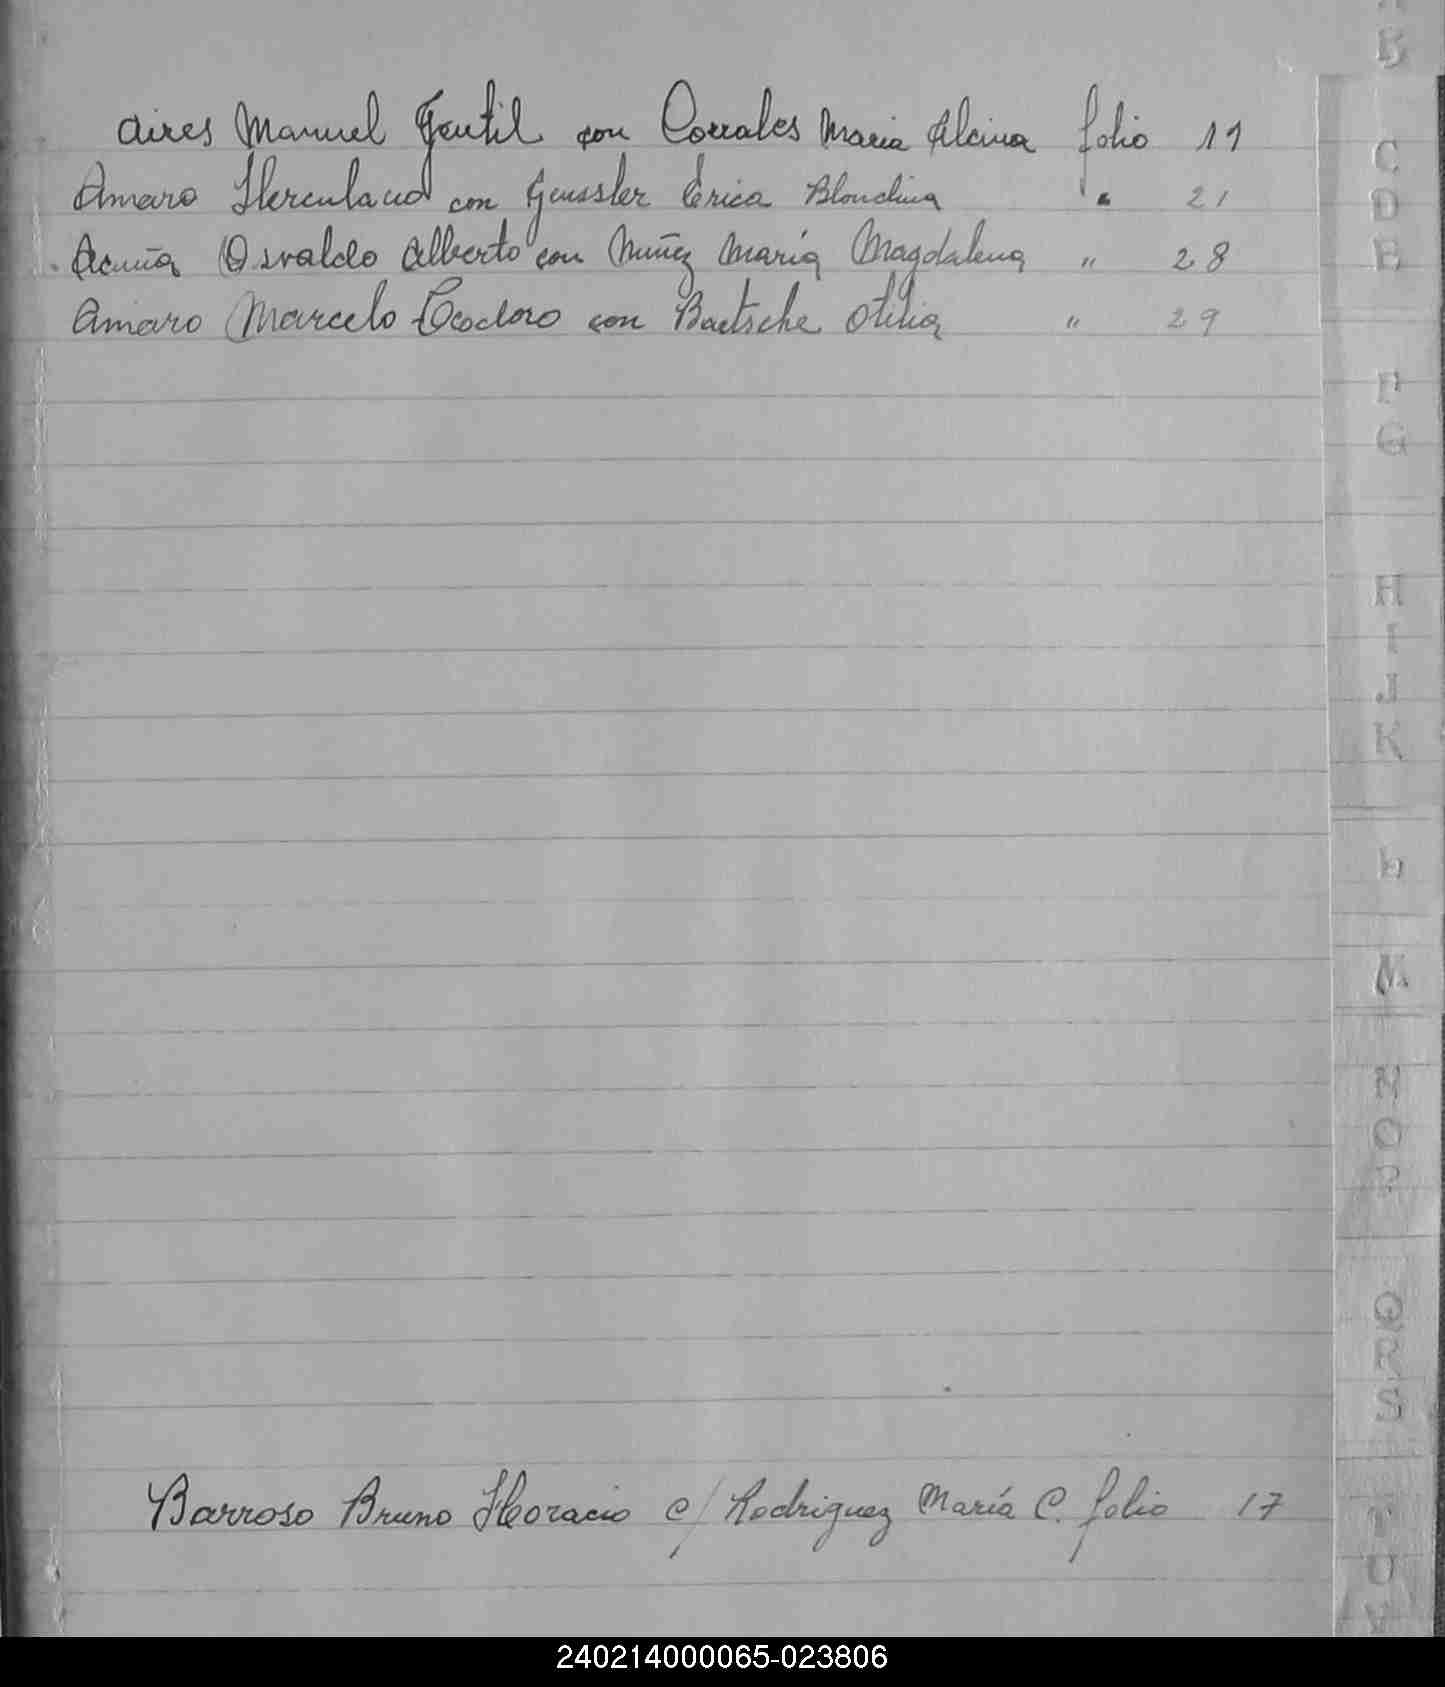 Aires Manuel Gentil con Corrales Maria Alcina folio 11
Amaro Herculano con Geussler Erica Blondina " 21
Acuña Osvaldo Alberto con Nuñez María Magdalena " 28
Amaro Marcelo Teodoro con Baetsche Otilia " 29
Barroso Bruno Horacio c/ Rodriguez María C. folio 17
B
C
D
E
F
G
H
I
J
K
M
N
O
P
Q
R
S
T
U
V
240214000065-023806